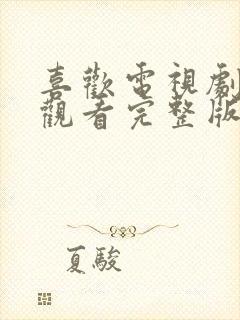 喜歡電視劇
觀看完整版
夏駿